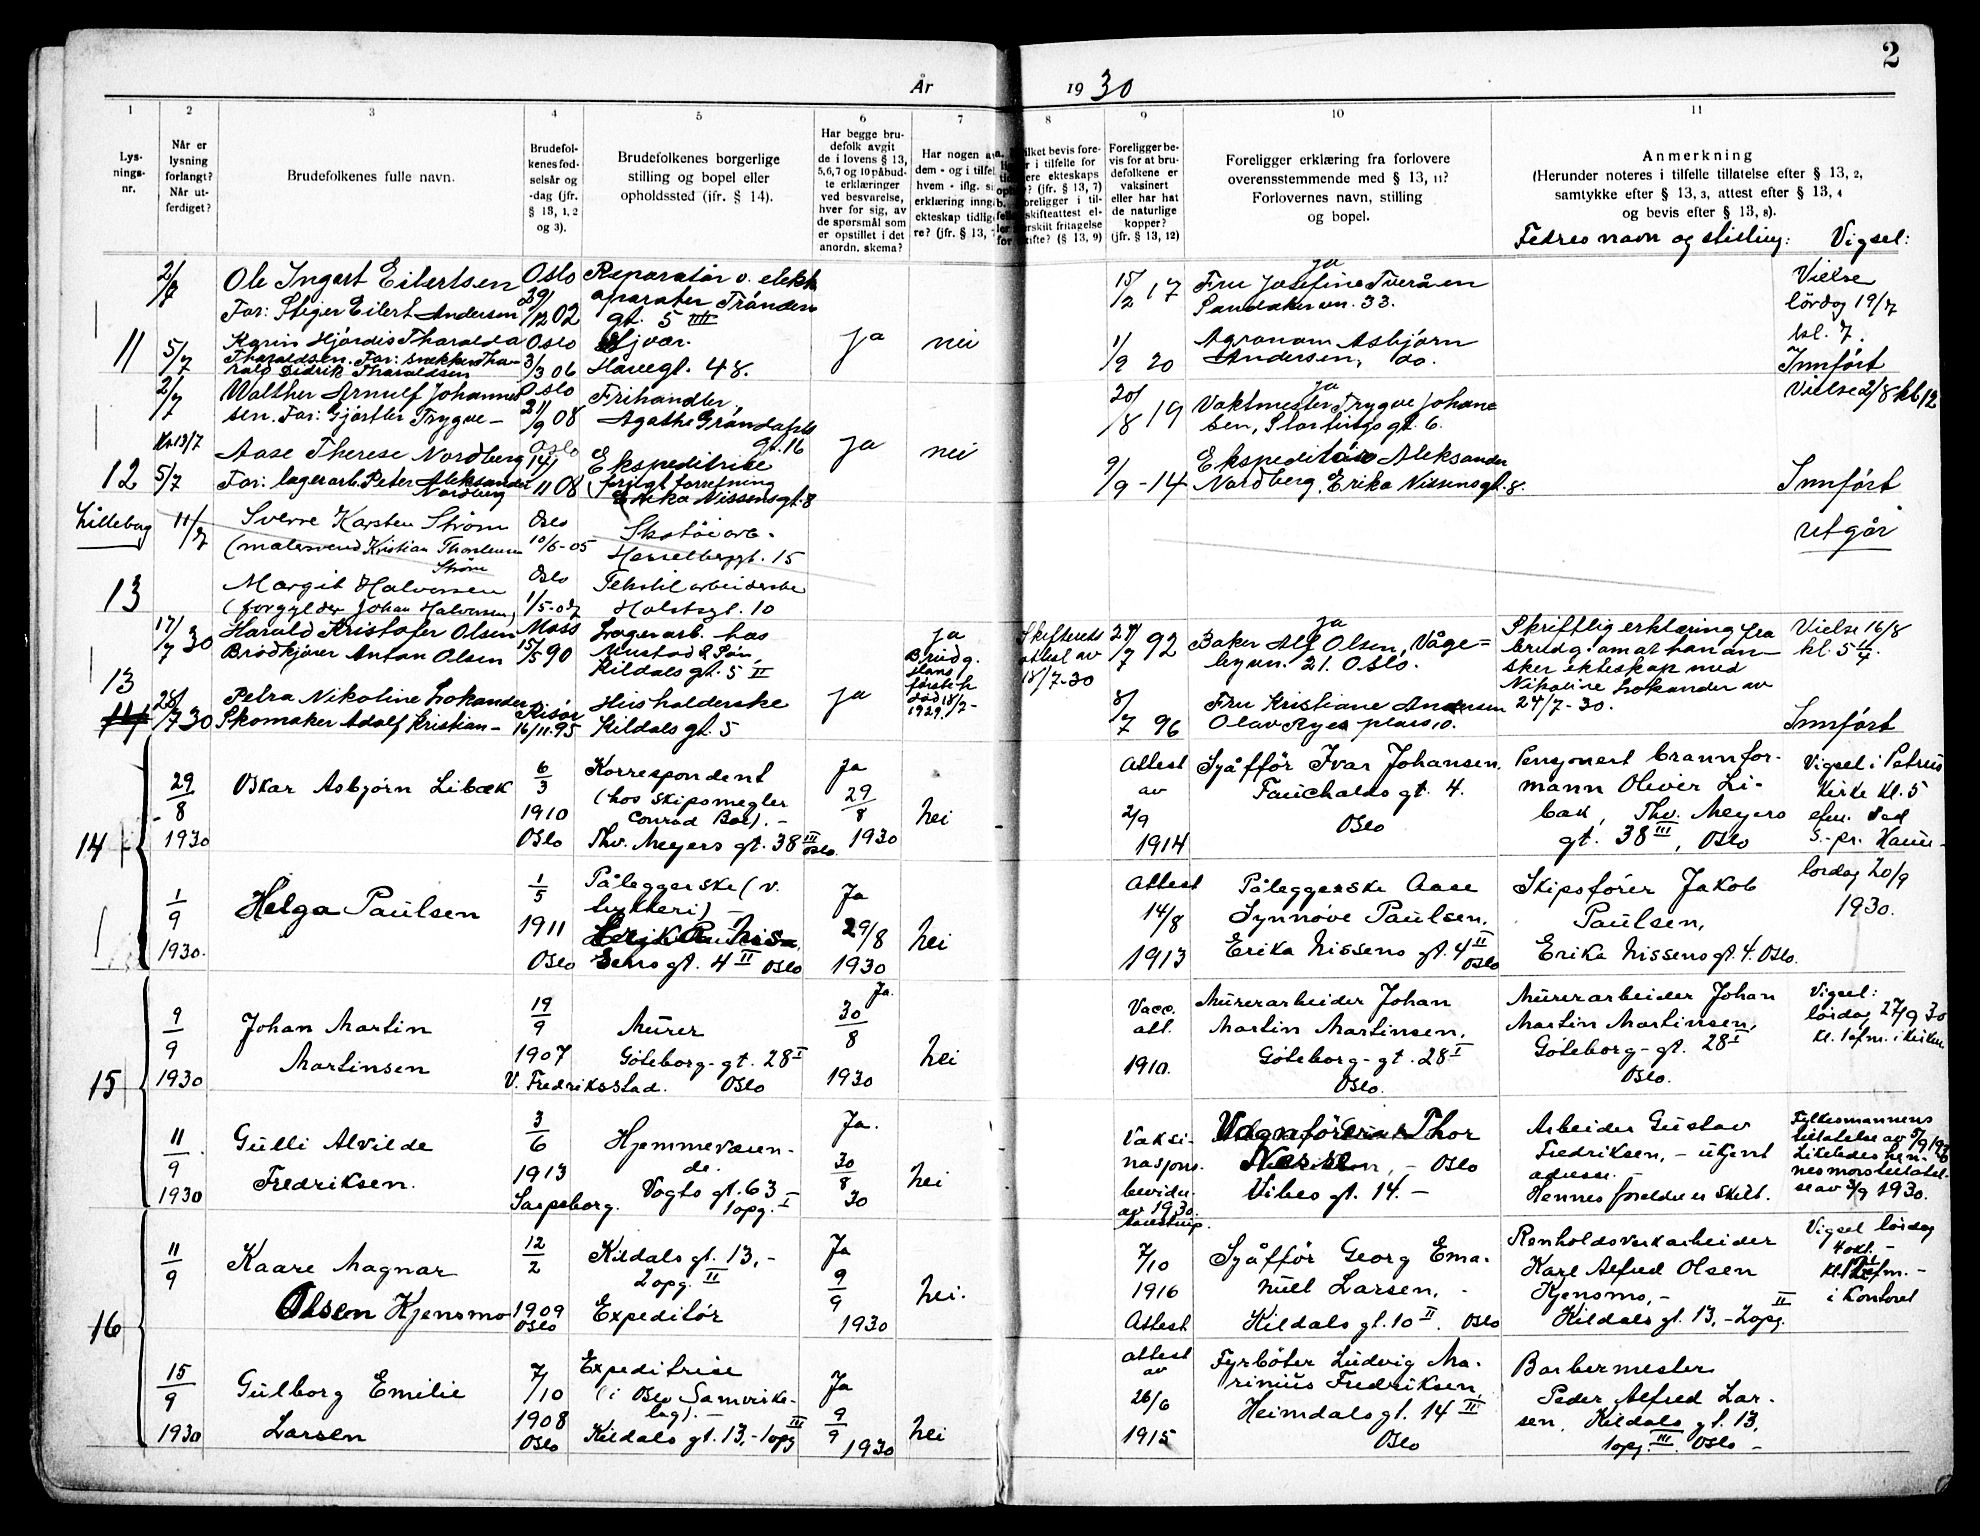 2
År 1930
1 2 3 4 5 6 7 8 9 10 11
Lys-
nings-
nr.
Når er
lysning
forlangt?
Når ut-
ferdiget?
Brudefolkenes fulle navn.
Brudefol-
kenes fød-
selsår og
-dag (jfr.
§ 13, 1, 2
og 3).
Brudefolkenes borgerlige
stilling og bopel eller
opholdssted (ifr. § 14).
Har begge bru-
defolk avgit
de i lovens § 13,
5, 6, 7 og 10 påbud-
te erklæringer
ved besvarelse,
hver for sig, av
de spørsmål som
er opstillet i det
anordn. skema?
Har nogen a
dem - og i tilfel
hvem - iflg. si
erklæring inng
ekteskap tidlig
re? (jfr. § 13,
ilket bevis fore-
r i tilfelle for
ere ekteskaps
? (jfr. § 13, 7)
oreligger i til-
skifteattest el-
rskilt fritagelse
kifte? (§ 13, 9)
Foreligger be-
vis for at bru-
defolkene er
vaksinert
eller har hat
de naturlige
kopper?
(jfr. § 13, 12)
Foreligger erklæring fra forlovere
overensstemmende med § 13, 11?
Forlovernes navn, stilling
og bopel.
Anmerkning
(Herunder noteres i tilfelle tillatelse efter § 13, 2,
samtykke efter § 13, 3, attest efter § 13, 4
og bevis efter § 13, 8).
Fedres navn og stilling: Vigsel:
11
2/7
Ole Ingart Eilertsen
Far: Stiger Eilert Andersen
Oslo
29/12 02
Reparatør v. elektr.
aparater Trånders
gt. 5 IIII
15/2 17
ja
Fru Josefine Tveråen
Sandakervn. 33.
Vielse
lördag 19/7
kl. 7.
5/7
Karin Hjördis Tharalda
Tharaldsen. Far: snekker Tha-
rald Didrik Tharaldsen
Oslo
3/3 06
Hjvær.
Havegt. 48.
ja
nei
1/9 20
Agronom Asbjörn
Andersen, do.
Innfört
12
2/7
Walther Arnulf Johannes
sen. Far: Gjørtler Trygve –
Oslo
21/9 08
Frihandler
Agathe Gröndahls
gt. 16
20/8 19
ja
Vaktmester Trygve Johane
sen, Stortings gt. 6.
Vielse 2/8 kl 12
Kv. 13/7
5/7
Aase Therese Nordberg
Far: lagerarb. Peter Aleksander
Nordberg
Oslo
14/11 08
Ekspeditrise
frugt forretning
Erika Nissensgt. 8
ja
nei
9/9 - 14
Ekspeditör Aleksander
Nordberg, Erika Nissensgt. 8.
Innfört
Lilleborg
11/7
Sverre Karsten Strøm
(malersvend Kristian Thorleum
Strøm
Oslo
10/6-05
Skotøiarb.
Hasselberggt. 15
utgår
13
Margit Halvorsen
(forgylder Johan Halvorsen)
Oslo
1/5-07
Tekstil arbeiderske
Holstsgt. 10
13
17/7 30
Harald Kristofer Olsen
Brødkjører Anton Olsen
Moss
15/5 90
Lagerarb. hos
Mustad & Søn
Kildals gt. 5 II
ja
Brudg.
Hans
förste h.
död 18/7-
1929.
Skifterets
attest av
18/7-30
27/7 92
ja
Baker Alf Olsen, Våge=
byvn. 21. Oslo.
Skriftlig erklæring fra
brudg. om at han øn-
sker ekteskap med
Nikoline Lokander av
24/7-30.
Vielse 16/8
kl. 5 1/4
14
28/7 30
Petra Nikoline Lokander
Skomaker Adolf Kristian –
Risör
16/11.95
Husholderske
Kildals gt. 5
ja
8/7 96
Fru Kristiane Andersen
Olav Ryes plass, 0.
Innfört
14
29/8
1930
Oskar Asbjørn Libæk
6/3
1910
Oslo
Korrespondent
(hos skipsmegler
Conrad Boe). –
Thv. Meyers gt. 38 III Oslo.
Ja
29/8
1930
Nei
Attest
av
2/9
1914
Syåffør Ivar Johansen,
Fauchalds gt. 4.
Oslo
Pensjonert brannfor-
mann Oliver Li-
bæk, Thv. Meyers
gt. 38 III, Oslo
Vigsel i Petrus
Kirke kl. 5
efm. ved
S.-pr. Haun-
lördag 20/9
1930.
1/9
1930.
Helga Paulsen
1/5
1911
Oslo
Påleggerske (v.
trykkeri) –
Erika Nis-
sens gt. 4 II Oslo
Ja
29/8
1930
Nei
Attest
14/8
1913
Påleggerske Aase
Synnöve Paulsen,
Erika Nissens gt. 4 II
Oslo
Skipsfører Jakob
Paulsen,
Erika Nissens gt. 4. Oslo.
15
9/9
1930
Johan Martin
Martinsen
19/9
1907
V. Fredriksstad.
Murer
Göteborg-gt. 28 I
Oslo
Ja.
30/8
1930
Nei
Vacc.
att.
1910.
Murerarbeider Johan
Martin Martinsen,
Göteborg-gt. 28 I
Oslo.
Murerarbeider Johan
Martin Martinsen,
Göteborg-gt. 28 I
Oslo.
Vigsel:
lördag 27/9 30
kl. 1 efm. i kirken
11/9
1930
Gulli Alvilde
Fredriksen.
3/6
1913
Sarpsborg.
Hjemmeværen-
de.
Vogts gt. 63 I
1 opg.
Ja.
30/8
30
Nei
Vaksi-
nasjons-
bevidn.
av 1930.
Vognförer Thor
Næss, – Oslo
Vibes gt. 14. –
Arbeider Gustav
Fredriksen, – ukjent
adresse. –
Hennes foreldre er skilt.
Fylkesmannens
tillatelse av 5/9 1930
Likeledes hen-
nes mors tillatel-
se av 3/9 1930.
16
11/9
Kaare Magnar
Olsen Kjensmo
12/2
1909
Oslo
Kildals gt. 13, –
2 opg. II
Expeditør
Ja
9/9
1930
Nei.
7/10
1916
Attest
Syåffør Georg Ema-
nuel Larsen,
Kildals gt. 10 II. Oslo
Renholdsverkarbeider
Karl Alfred Olsen
Kjensmo, –
Kildals gt. 13, – 2 opg. II
Vigsel lördag
4 okt. –
kl. 1 efm. –
i kontoret
15/9
1930
Gulborg Emilie
Larsen
7/10
1908
Oslo
Expeditrise
(i Oslo Samvirke-
lag). –
Kildals gt. 13, – 1 opg III
Ja
9/9
1930
Nei
Attest
av
26/6
1915
Fyrböter Ludvig Ma-
rinius Fredriksen,
Heimdals gt. 14 II
Oslo
Barbermester
Peder Alfred Lar-
sen, Kildals gt. 13,
1 opg. III. Oslo –